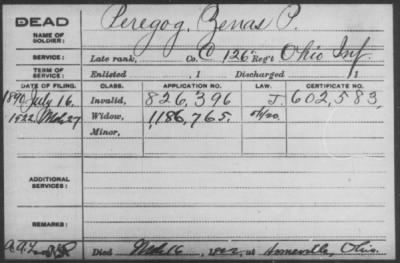 DEAD
NAME OF SOLDIER: Peregog, Zenas P.
SERVICE: Late rank, Co. C 126" Reg't Ohio Inf.
TERM OF SERVICE: Enlisted , 1 Discharged , 1
DATE OF FILING. CLASS. APPLICATION NO. LAW. CERTIFICATE NO.
1890 July 16. Invalid, 826,396 J. 602,583
1922 Mch 27 Widow, 1,186,765.
Minor,
ADDITIONAL SERVICES:
REMARKS:
Died Mch 16, 1922, at Ohio.